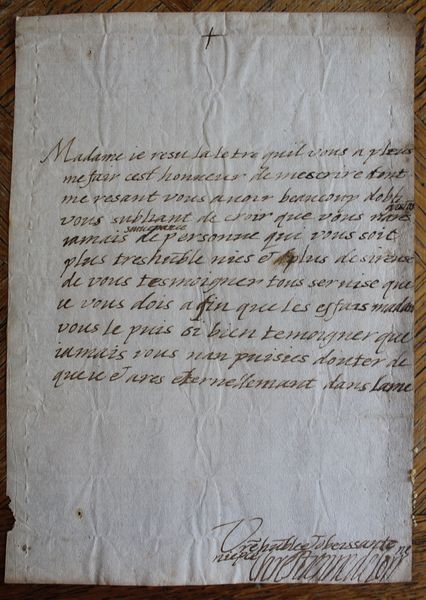 +
Madame ie resu la letre quil vous a pleus
me fair cest honneur de mescrire dont
me resant vous auoir beaucoup dobli
vous subliant de croir que vous nares
iamais de personne qui vous soit
plus treshuble nies et plus de sirense
de vous tesmoigner tous seruise que
ie vous dois a fin que les effais madam
vous le puis si bien temoigner que
iamais vous nan puisies douter de
que ie dares eternellemant dans lame
Vre huble et obeissante
niepce